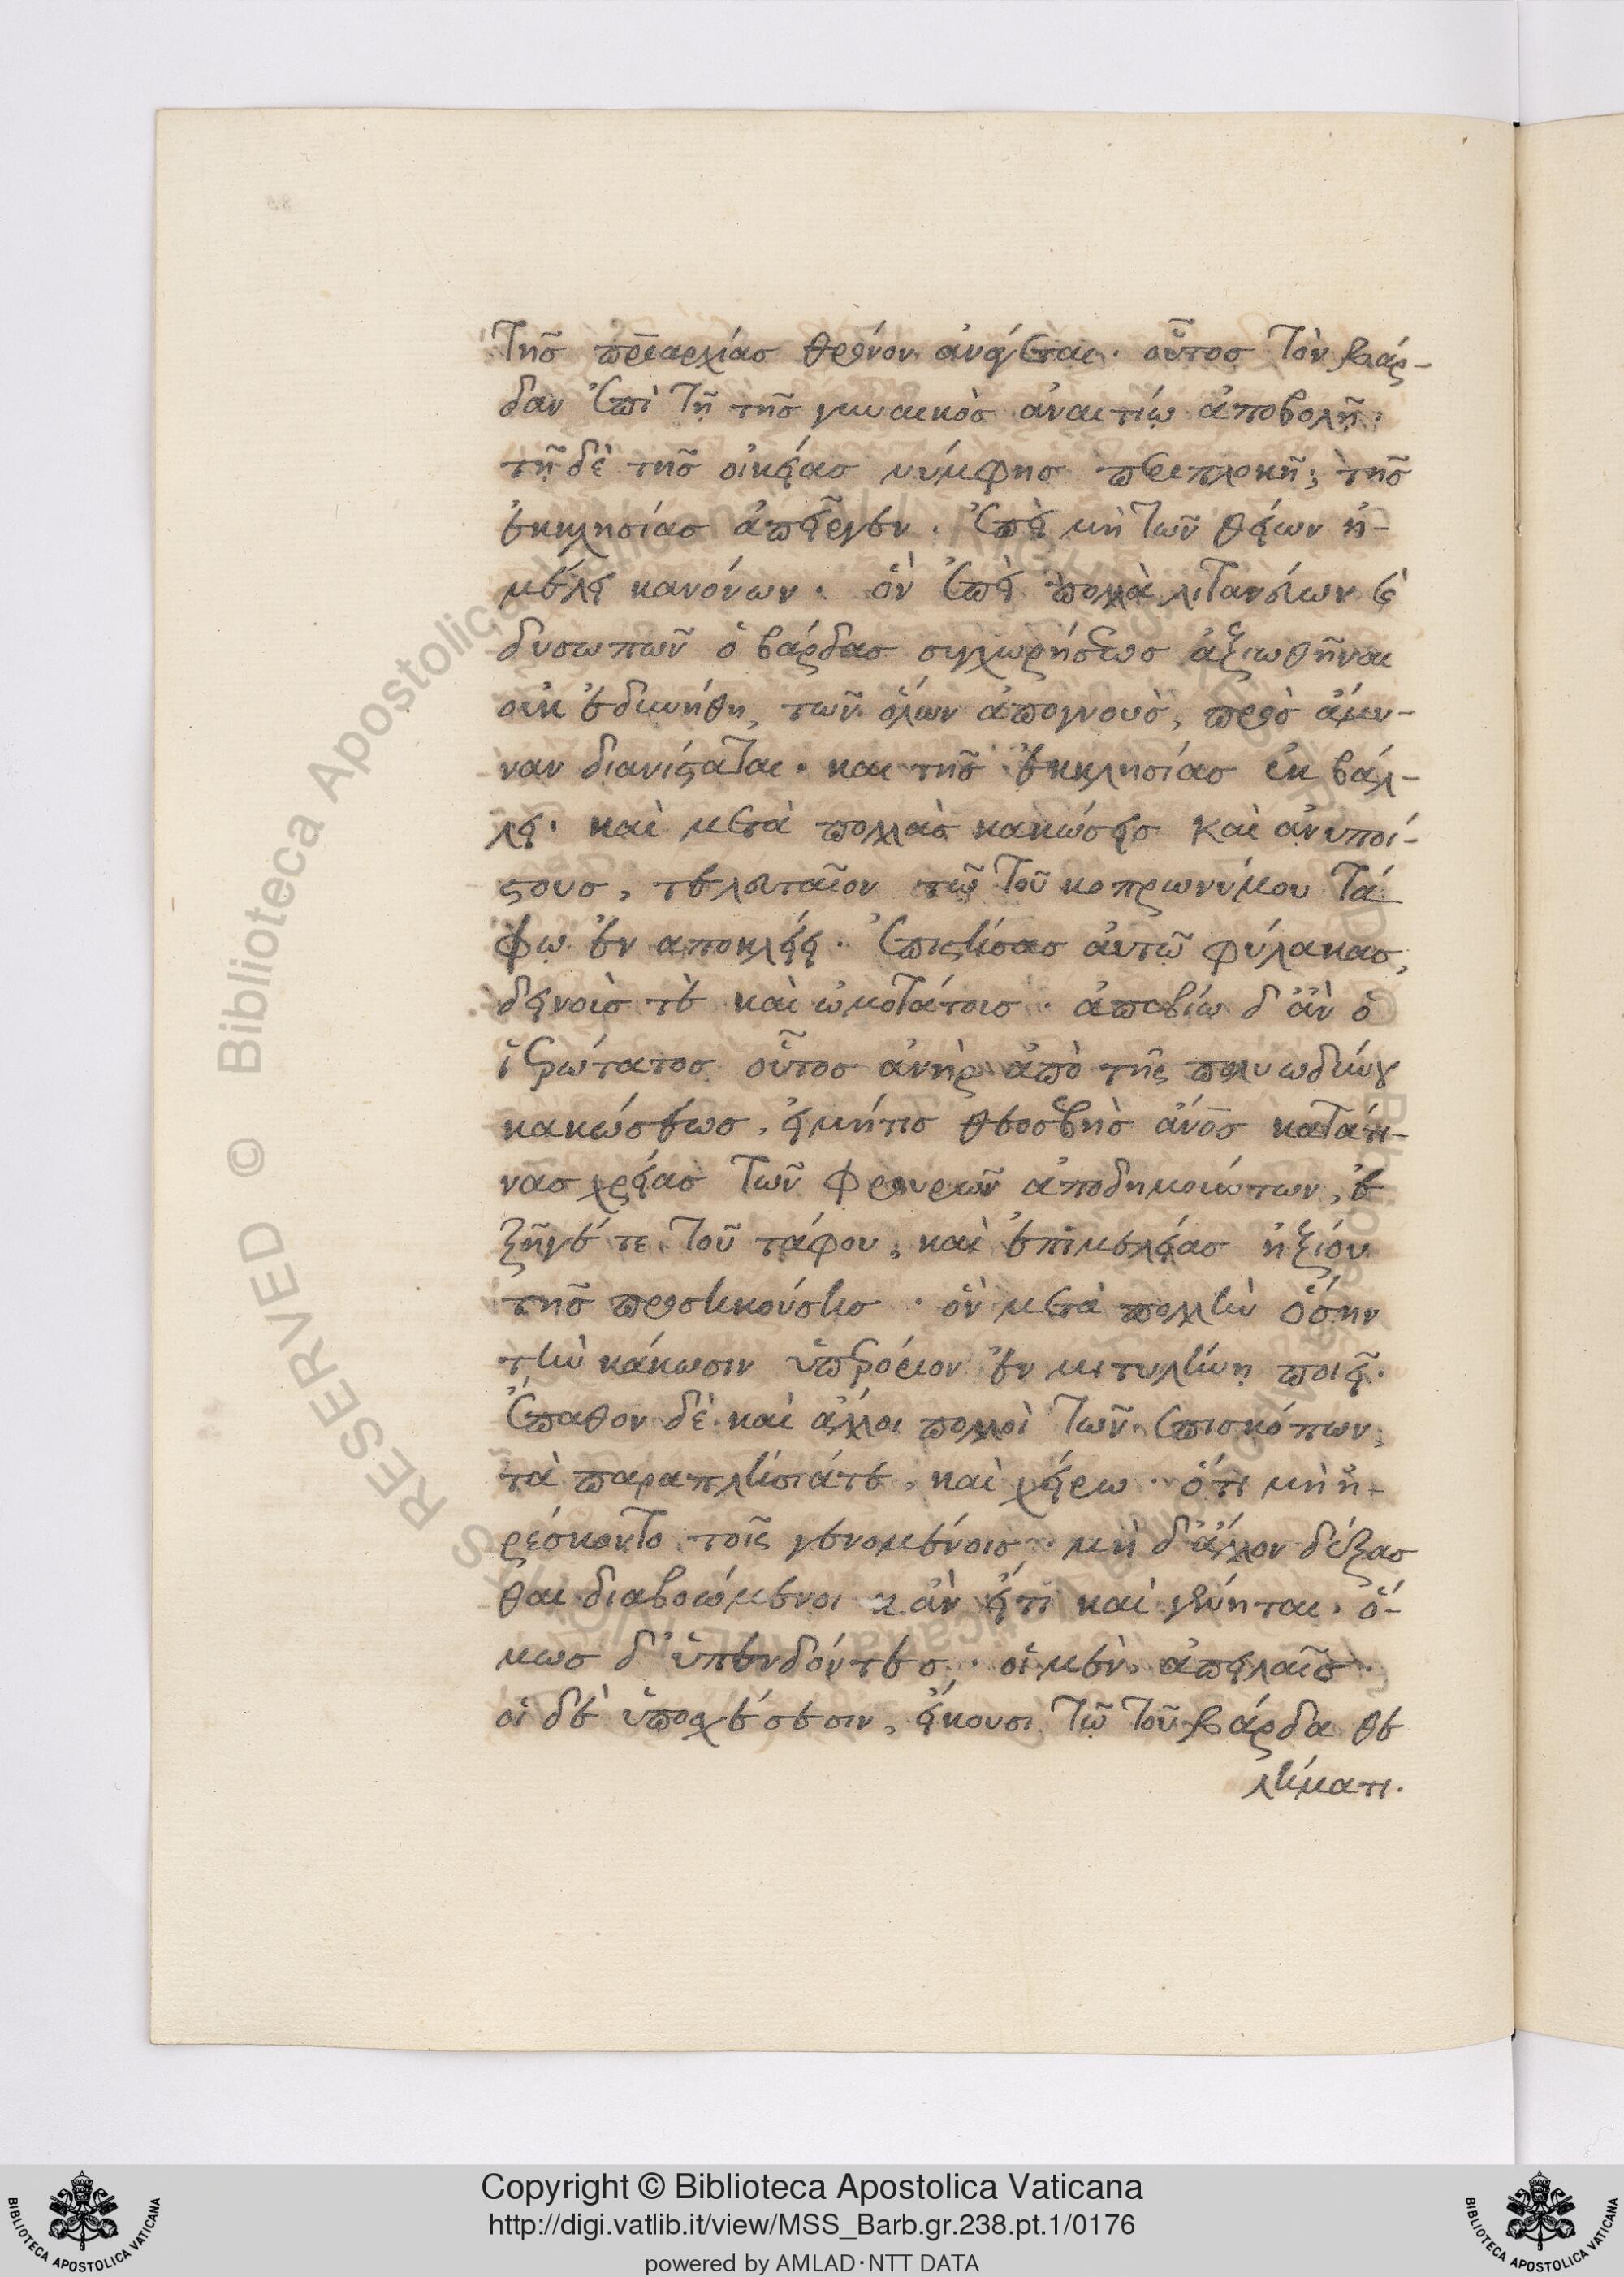 τῆς πριαρχίας θρόνον ἀνάγεται. οὗτος τὸν βάρ-
δαν ἐπὶ τῇ τῆς γυναικὸς ἀναιτίῳ ἀποβολῇ.
τῇ δὲ τῆς οἰκείας νύμφης περιπλοκῇ, τῆς
ἐκκλησίας ἀπεῖργεν. ἐπεὶ μὴ τῶν θείων ἠ-
μέλει κανόνων. ὃν ἐπεὶ πολλὰ λιτανεύων καὶ
δυσωπῶν ὁ βάρδας συγχωρήσεως ἀξιωθῆναι
οὐκ ἐδυνήθη, τῶν ὅλων ἀπογνοὺς, πρὸς ἄμυ-
ναν διανίσταται. και τῆς ἐκκλησίας ἐκ βάλ-
λει. καὶ μετὰ πολλὰς κακώσεις καὶ ἀνυποί-
στους, τελευταῖον τῷ τοῦ κοπρωνύμου τά
φῳ ἐν αποκλείει. ἐπιστήσας αὐτῷ φύλακας,
δεινοὺς τὲ καὶ ὠμοτάτοις. ἀπεβίω δ' ἂν ὁ
ἱερώτατος οὗτος ἀνὴρ ἀπὸ τῆς πολυωδύνου
κακώσεως, εἰμήτις θεοσεβὴς ἀνος κατάτι-
νας χρείας τῶν φρουρῶν ἀποδημούντων, ἐ
ξῆγέ τε τοῦ τάφου, καὶ ἐπιμελείας ἠξίου
τῆς προσηκούσης. ὃν μετὰ πολλὴν ὅσην
τὴν κάκωσιν ὑπερόριον ἐν μιτυλήνῃ ποιεῖ.
ἔπαθον δὲ καὶ ἄλλοι πολλοὶ τῶν ἐπισκόπων,
τὰ παραπλήσιάτε, καὶ χείρω. ὅτι μὴ ἠ-
ρέσκοντο τοῖς γενομένοις. μὴ δ' ἄλλον δέξασ
θαι διαβοώμενοι κ ἂν εἴτι καὶ γένηται. ὅ-
μως δ' ὑπενδόντες. οἱ μὲν ἀπειλαῖς.
οἱ δὲ ὑποσχέσεσιν, εἴκουσι τῷ τοῦ βάρδα θε
λήματι.
Copyright © Biblioteca Apostolica Vaticana
http://digi.vatlib.it/view/MSS_Barb.gr.238.pt.1/0176
powered by AMLAD·NTT DATA